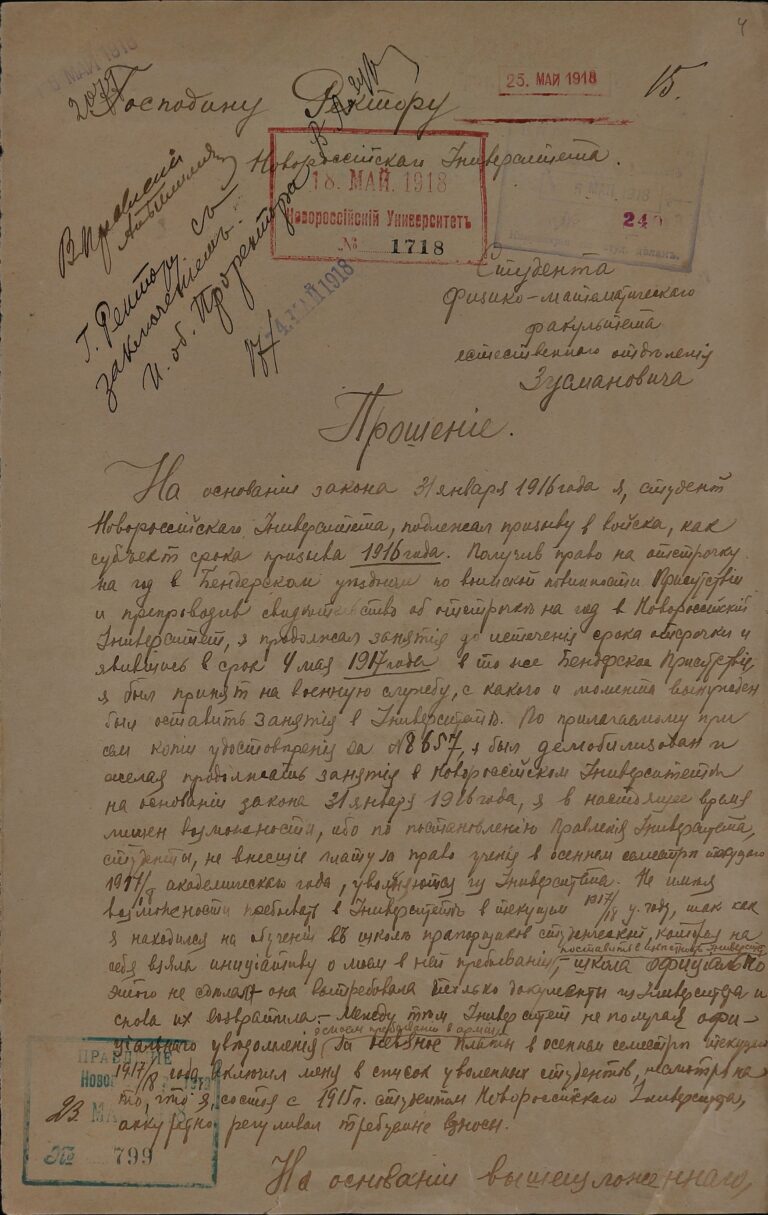 4
25. МАЙ 1918
15.
Господину Ректору
Новороссійскаго Университета.
18. МАЙ. 1918
Новороссійскій Университетъ
№ 1718
240
Г. Ректору съ
заключеніемъ.
И. об. Проректора
Студента
физико-математическаго
факультета
естественного отдѣленія
Зусмановича
Прошеніе.
На основаніи закона 31 января 1916 года я, студент
Новороссійскаго Университета, подлежал призыву в войска, как
субъект срока призыва 1916 года. Получив право на отсрочку
на год в Бендерском уѣздном по воинской повинности Присутствіи
и препроводив свидѣтельство об отсрочкѣ на год в Новороссійскій
Университет, я продолжал занятія до истеченія срока отсрочки и
явившись в срок 4 мая 1917 года в то же Бендерское Присутствіе
я был принят на военную службу, с какого и момента вынужден
был оставить занятія в Университетѣ. По прилагаемому при
сем копіи удостовѣренія за № 8657, я был демобилизован и
желая продолжать занятія в Новороссійском Университетѣ
на основаніи закона 31 января 1916 года, я в настоящее время
лишен возможности, ибо по постановленію Правленія Университета,
студенты, не внесшіе плату за право ученія в осеннем семестрѣ текущаго
1917/8 академическаго года, увольняются из Университета. Не имѣя
возможности пребывать в Университетѣ в текущем 1917/18 у. году, так как
я находился на обученіи въ школѣ прапорщиков студенческій, которая на
себя взяла иниціативу о моем в ней пребываніи, - школа официально
поставить в извѣстность Университет
этого не сдѣлала, она вытребовала только документы из Университета и
снова их возвратила. - Между тѣм Университет не получая офи-
ціальнаго увѣдомленія за невзнос платы в осеннем семестрѣ текущаго
1917/8 года, включил меня в список уволенных студентов, несмотря на
то, что я, состоя с 1915 г. студентом Новороссійскаго Университета,
аккуратно регулировал требуемые взносы.
ПРАВЛЕНИЕ
23 МАЙ
№ 799
На основаніи вышеизложеннаго,